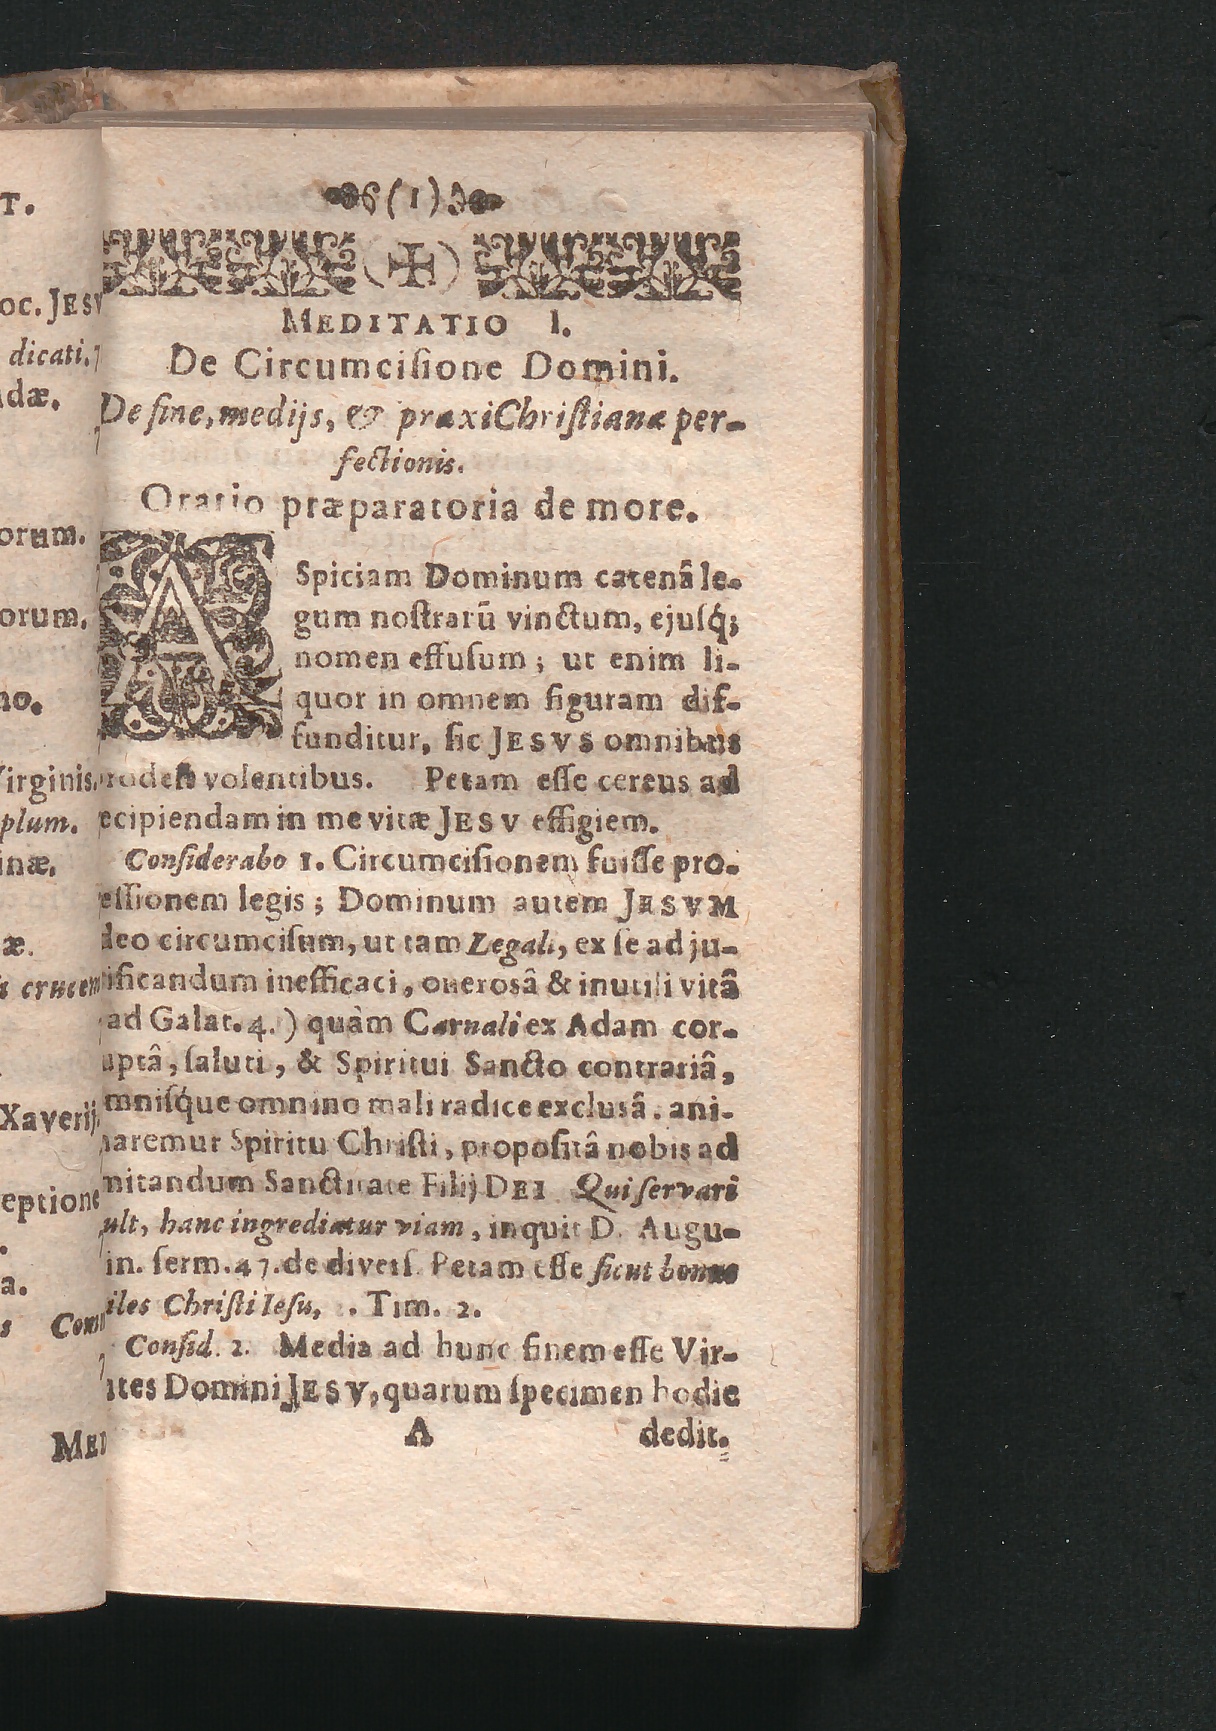 T.
oc. JESV
dicati.
dæ.
orum.
orum.
no.
Virginis.
plum.
inæ.
æ.
crucem
Xaverij
eptione
a.
s Com
MED
(1)
MEDITATIO I.
De Circumcisione Domini.
De fine, medijs, & praxi Christianæ per-
fectionis.
Oratio præparatoria de more.
ASpiciam Dominum catenâ le-
gum nostrarū vinctum, ejusq́;
nomen effusum; ut enim li-
quor in omnem figuram dif-
funditur, sic JESVS omnibus
prodest volentibus. Petam esse cereus ad
ecipiendam in me vitæ JESV effigiem.
Considerabo 1. Circumcisionem fuisse pro-
essionem legis; Dominum autem JESVM
deo circumcisum, ut tam Legali, ex se ad ju-
ificandum inefficaci, onerosâ & inutili vitâ
ad Galat. 4.) quàm Carnali ex Adam cor-
uptâ, saluti, & Spiritui Sancto contrariâ,
mnisq́ue omnino mali radice exclusâ. ani-
naremur Spiritu Christi, propositâ nobis ad
mitandum Sanctitate Filij DEI Qui servari
ult, hanc ingrediatur viam, inquit D. Augu-
in. serm. 47. de divers. Petam esse sicut bonus
iles Christi Iesu, . Tim. 2.
Consid. 2. Media ad hunc finem esse Vir-
utes Domini JESV, quarum specimen hodie
A dedit.